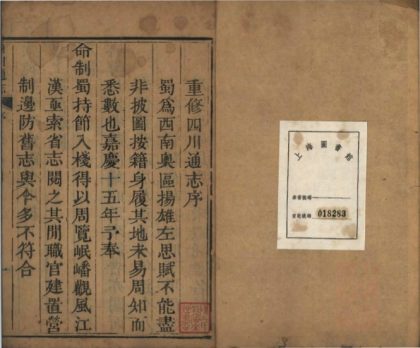 重修四川通志序
蜀爲西南奥區揚雄左思賦不能盡
非披圖按籍身履其地未易周知而
悉數也嘉慶十五年予奉
命制蜀持節入棧得以周覽岷嶓觀風江
漢亟索省志閱之其間職官建置營
制邊防舊志與今多不符合
上海圖書館
018283